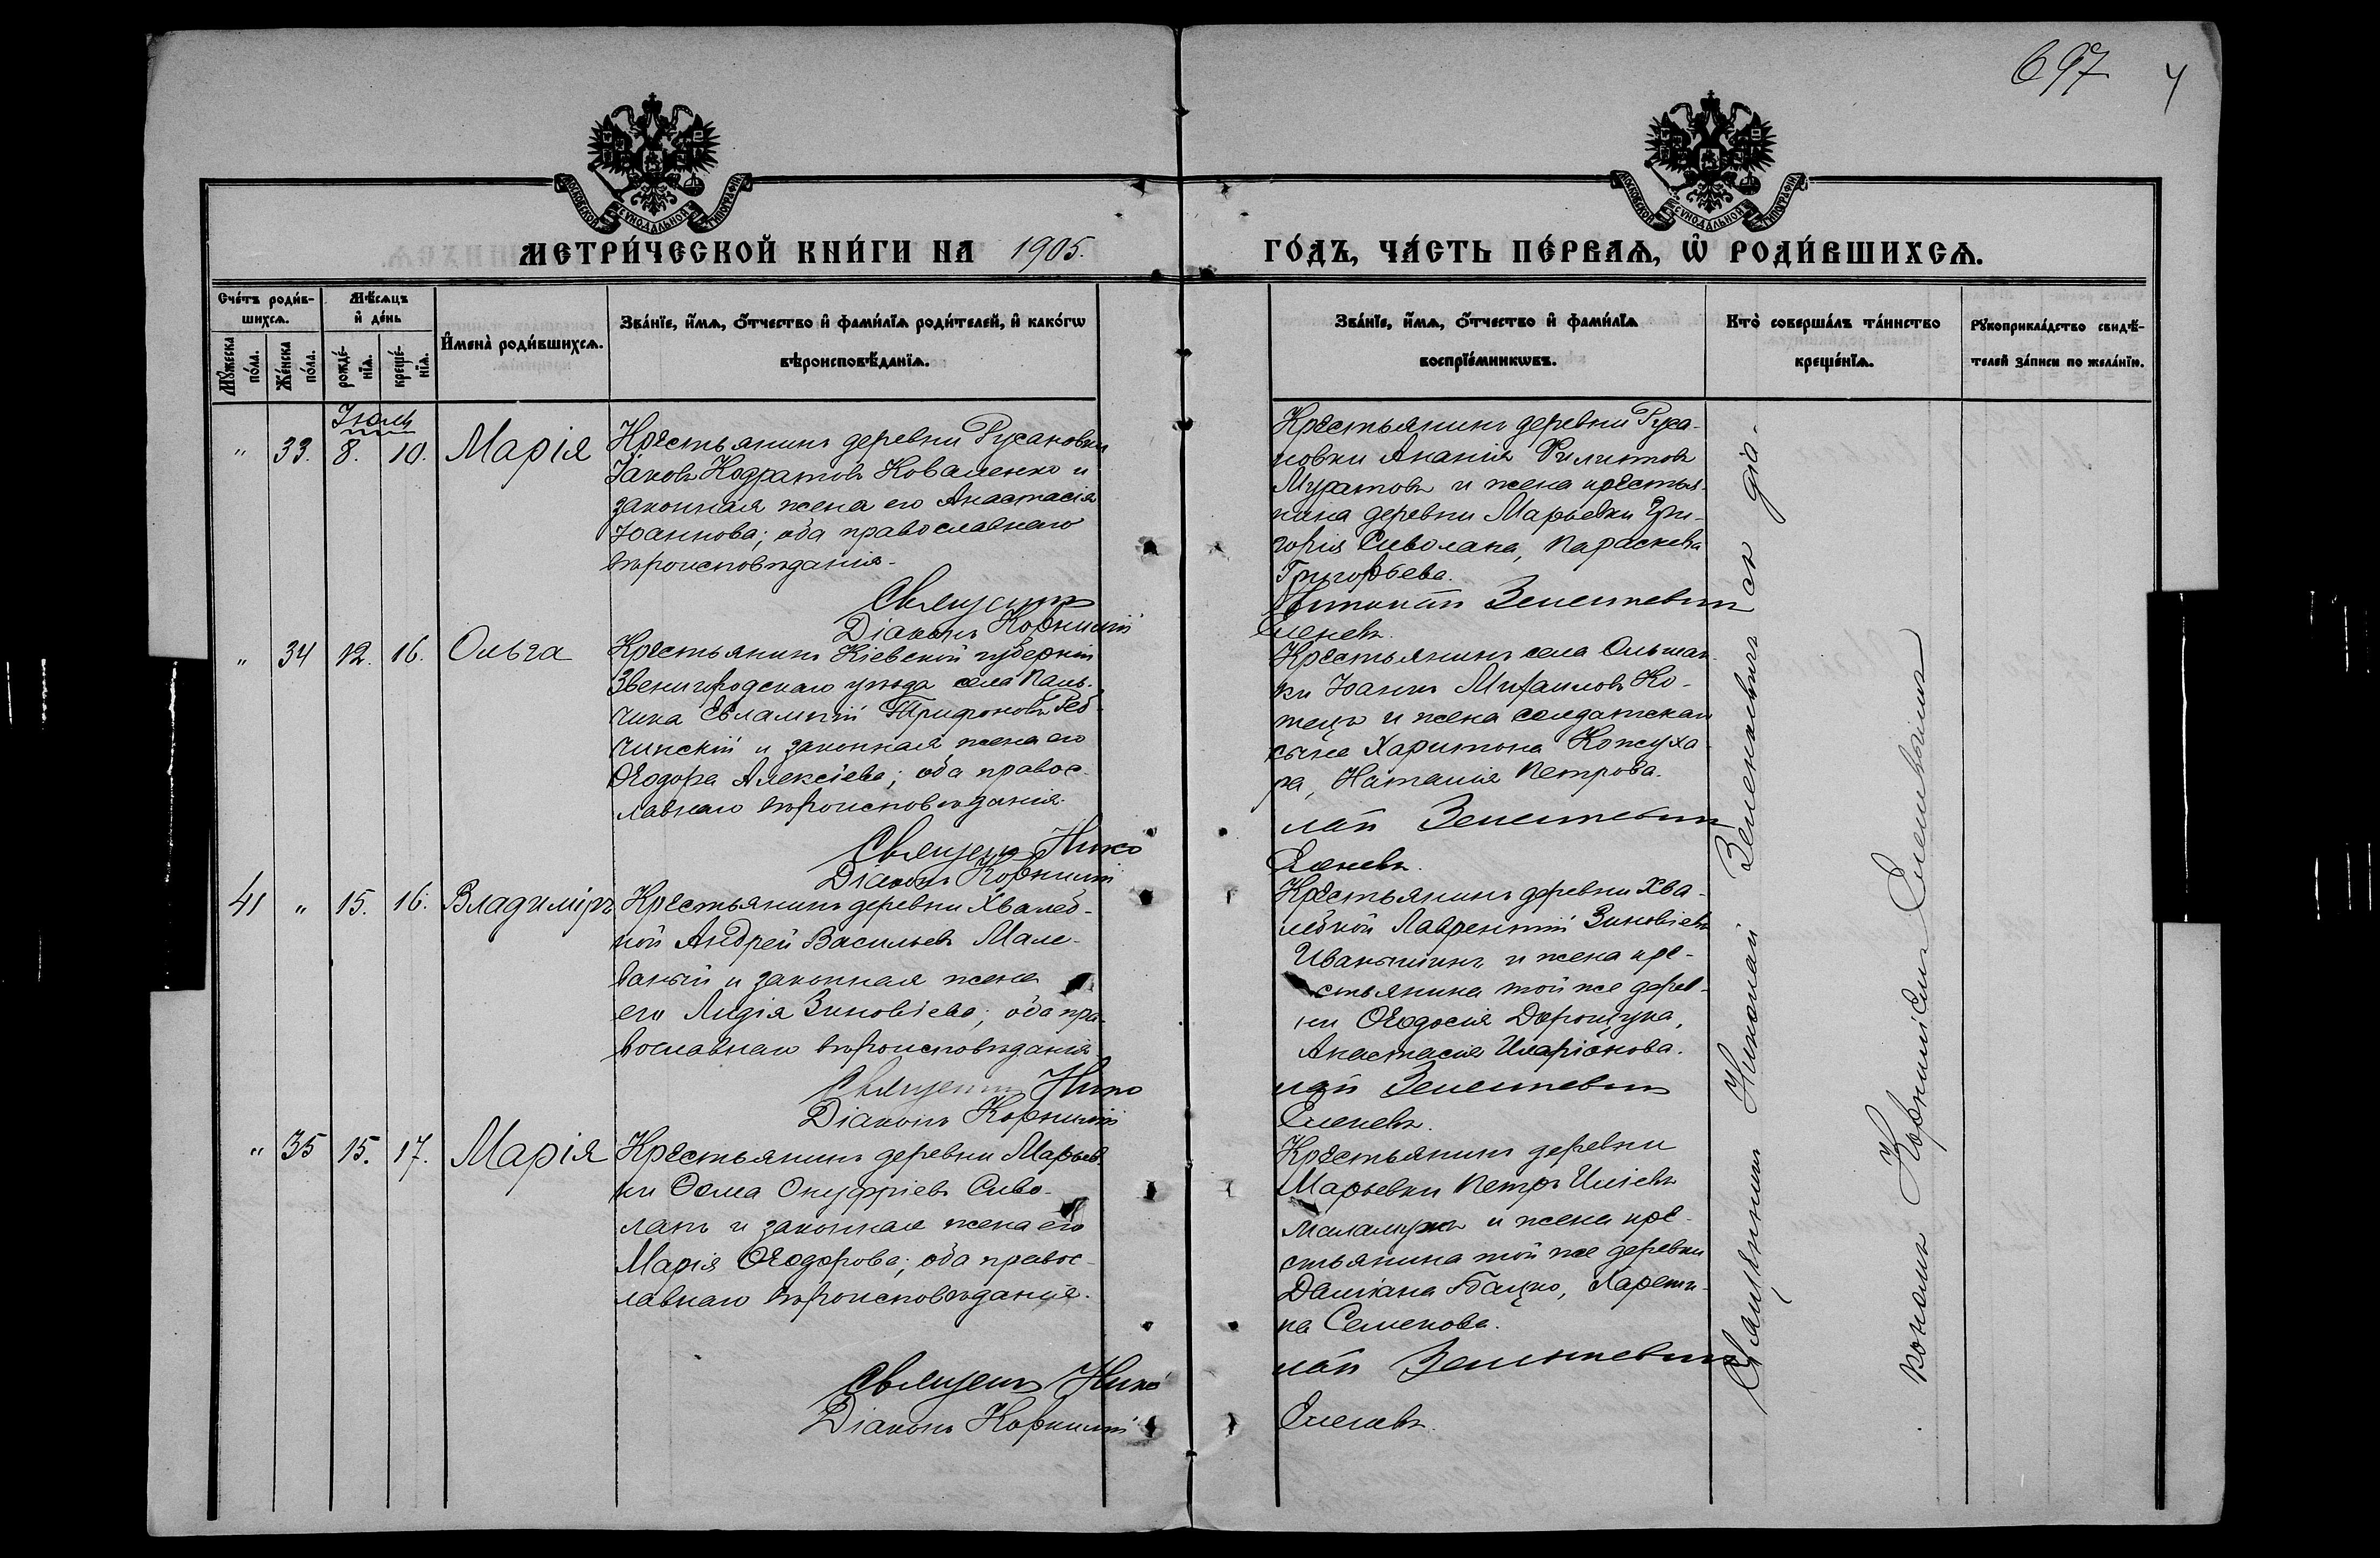 697 4
МОСКОВСКОЙ СѴНОДАЛЬНОЙ ТИПОГРАФІИ
МОСКОВСКОЙ СѴНОДАЛЬНОЙ ТИПОГРАФІИ
МЕТРИ́ЧЕСКОЙ КНИ́ГИ НА 1905. ГО́ДЪ, ЧА́СТЬ ПЕ́РВАѦ, Ѡ҆ РОДИ́ВШИХСѦ.
Сче́тъ роди́в-
шихсѧ.
Мꙋ́жеска по́ла.
Же́нска по́ла.
Мѣ́сѧцъ
и҆ де́нь
рожде́-
нїѧ.
креще́-
нїѧ.
И҆мена̀ роди́вшихсѧ.
Зва́нїе, и҆́мѧ, ѻ҆́тчество и҆ фами́лїѧ роди́телей, и҆ како́гѡ
вѣроисповѣ́данїѧ.
Зва́нїе, и҆́мѧ, ѻ҆́тчество и҆ фами́лїѧ
воспрїе́мникѡвъ.
Кто̀ соверша́лъ та́инство
креще́нїѧ.
Рꙋкоприкла́дство свидѣ́-
телей за́писи по жела́нїю.
Іюль
" 33. 8. 10. Марія
Крестьянинъ деревни Русановки
Іаковъ Кодратовъ Коваленко и
законная жена его Анастасія
Іоаннова; оба православнаго
вѣроисповѣданія.
Священ
Діаконъ Корнилій
Крестьянинъ деревни Руса-
новки Ананія Филиповъ
Муратовъ и жена крестья-
нина деревни Марьевки Гри-
горія Сиволапа, Параскева
Григорьева.
Николай Зеленкевич
Еленевъ.
" 34 12. 16. Ольга
Крестьянинъ Кіевской губерніи
Звенигродскаго уѣзда села Паль-
чика Евлампій Трифоновъ Реб-
чинскій и законная жена его
Ѳеодора Алексіева; оба правос-
лавнаго вѣроисповѣданія.
Священ Нико
Діаконъ Корнилій
Крестьянинъ села Ольшан-
ки Іоаннъ Михаиловъ Ко-
тецъ и жена солдатскаго
сына Харитона Кожуха-
ра, Наталія Петрова.
лай Зеленкевич
Еленевъ.
41 " 15. 16. Владиміръ
Крестьянинъ деревни Хвалеб-
ной Андрей Васильевъ Мале-
ваный и законная жена
его Лидія Зиновіева; оба пра-
вославнаго вѣроисповѣданія
Священ Нико
Діаконъ Корнилій
Крестьянинъ деревни Хва-
лебной Лаврентій Зиновіевъ
Иванишинъ и жена кре-
стьянина той же дерев-
ни Ѳеодосія Дорошука,
Анастасія Иларіонова.
лай Зеленкевич
Еленевъ.
" 35 15. 17. Марія
Крестьянинъ деревни Марьев-
ки Ѳома Онуфріевъ Сиво-
лапъ и законная жена его
Марія Ѳеодорова; оба правос-
лавнаго вѣроисповѣданія.
Священ Нико
Діаконъ Корнилій
Крестьянинъ деревни
Марьевки Петръ Иліевъ
и жена кре-
стьянина той же деревни
Даміана Бацко,
на Семенова.
лай Зеленкевич
Еленевъ.
Священникъ Николай Зеленкевичъ съ діа-
кономъ Корниліемъ Еленевымъ